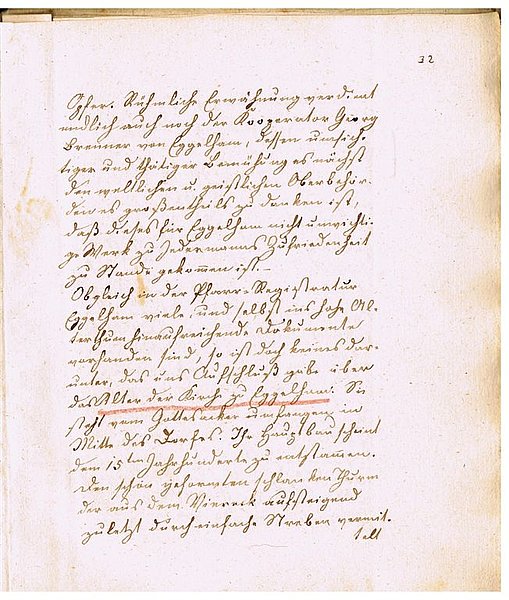 32
Opfer. Rühmliche Erwähnung verdient
endlich auch noch der Kooperator Georg
Brenner von Eggelham, dessen umsich-
tiger und thätiger Bemühung es nächst
den weltlichen u. geistlichen Oberbehör-
den es großentheils zu danken ist,
daß dieses für Eggelham nicht unwichti-
ge Werk zu Jedermanns Zufriedenheit
zu Stande gekommen ist. –
Obgleich in der Pfarr-Registratur
Eggelham viele und selbst ins hohe Al-
terthum hinaufreichende Dokumente
vorhanden sind, so ist doch keines dar-
unter, das uns Aufschluß gäbe über
das Alter der Kirche zu Eggelham. Sie
steht vom Gottesacker umfangen in
Mitte des Dorfes. Ihr Hauptbau scheint
dem 15ten Jahrhunderte zu entstammen.
Den schön geformten schlanken Thurm
der aus dem Viereck aufsteigend
zuletzt durch einfache Streben vermit-
telt